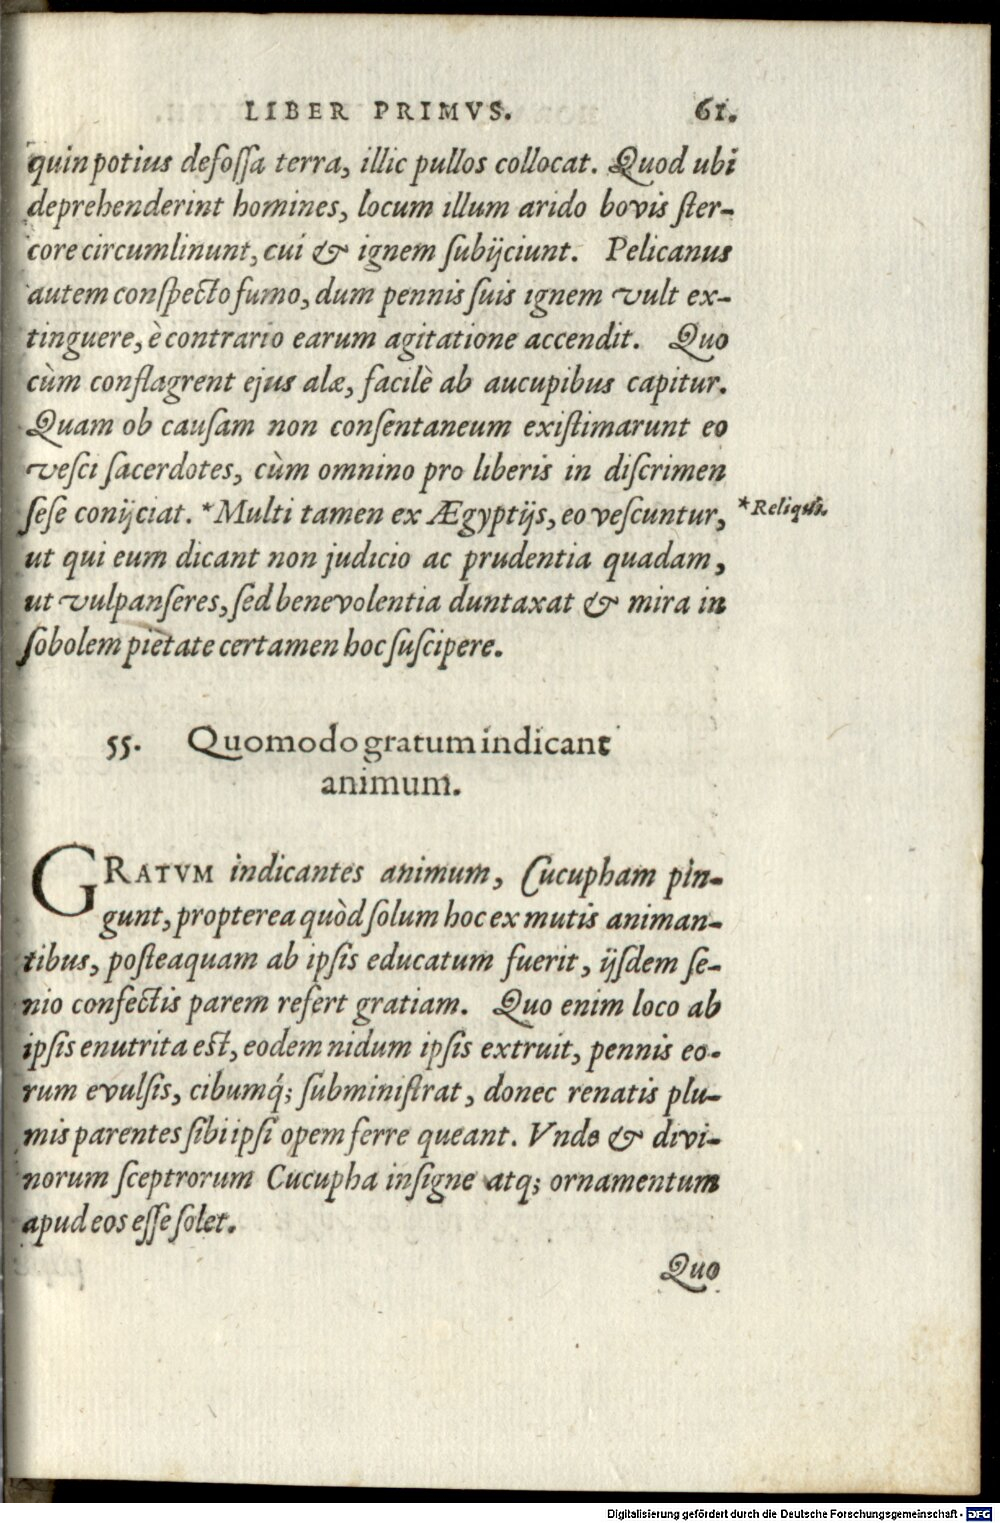 LIBER PRIMVS. 61.
quin potius defossa terra, illic pullos collocat. Quod ubi
deprehenderint homines, locum illum arido bovis ster-
core circumlinunt, cui & ignem subijciunt. Pelicanus
autem conspecto fumo, dum pennis suis ignem vult ex-
tinguere, è contrario earum agitatione accendit. Quo
cùm conflagrent ejus alæ, facilè ab aucupibus capitur.
Quam ob causam non consentaneum existimarunt eo
vesci sacerdotes, cùm omnino pro liberis in discrimen
sese conijciat. *Multi tamen ex Ægyptijs, eo vescuntur,
*Reliquis.
ut qui eum dicant non judicio ac prudentia quadam,
ut vulpanseres, sed benevolentia duntaxat & mira in
sobolem pietate certamen hoc suscipere.
55. Quomodo gratum indicant
animum.
GRATVM indicantes animum, Cucupham pin-
gunt, propterea quòd solum hoc ex mutis animan-
tibus, posteaquam ab ipsis educatum fuerit, ijsdem se-
nio confectis parem refert gratiam. Quo enim loco ab
ipsis enutrita est, eodem nidum ipsis extruit, pennis eo-
rum evulsis, cibumq́; subministrat, donec renatis plu-
mis parentes sibi ipsi opem ferre queant. Vnde & divi-
norum sceptrorum Cucupha insigne atq; ornamentum
apud eos esse solet.
Quo
Digitalisierung gefördert durch die Deutsche Forschungsgemeinschaft - DFG